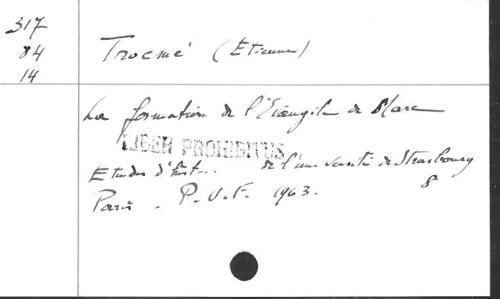 317
84
14
Trocmé (Etienne)
La formation de l'Evangile de Marc
LIBER PROHIBITUS
Etudes d'hist... de l'université de Strasbourg
8
Paris. P.U.F. 1963.